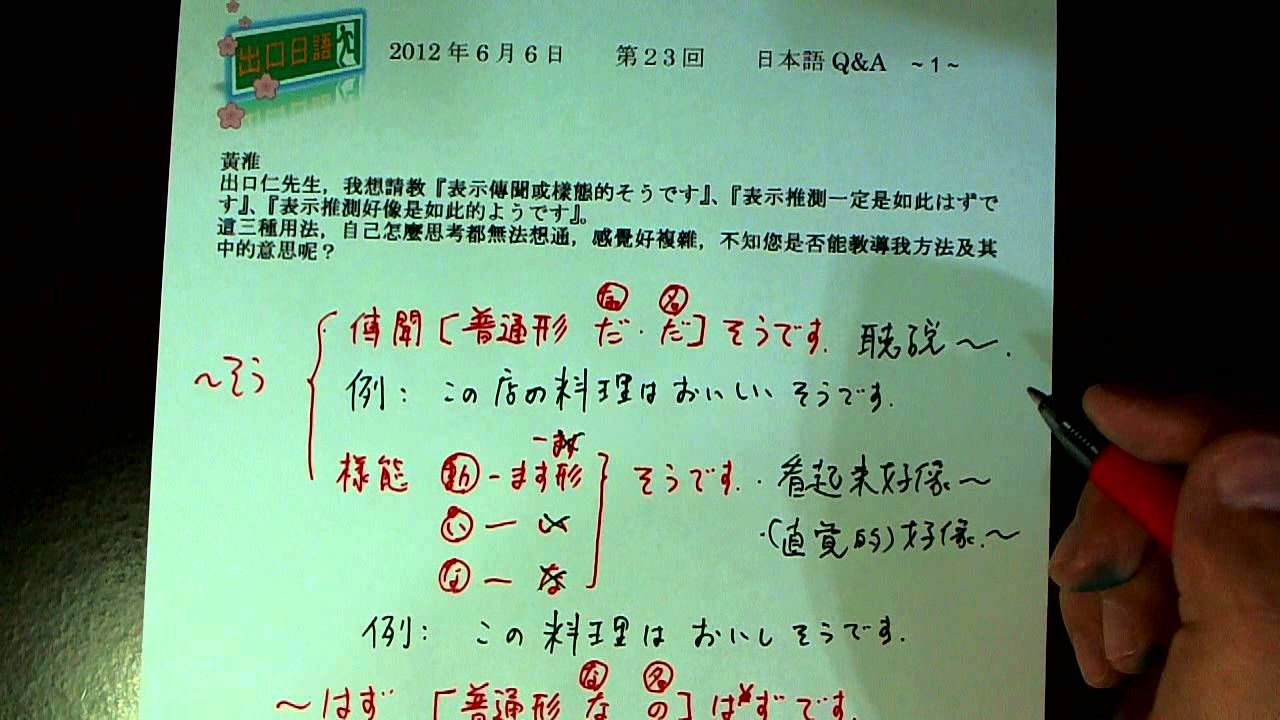 出口日語
2012年6月6日 第23回 日本語Q&A ~1~
黃淮
出口仁先生，我想請教『表示傳聞或樣態的そうです』、『表示推測一定是如此はずで
す』、『表示推測好像是如此的ようです』。
這三種用法，自己怎麼思考都無法想通，感覺好複雜，不知您是否能教導我方法及其
中的意思呢？
な 名
傳聞 [普通形 だ・だ] そうです. 聽說～.
～そう
例: この店の料理はおいしい そうです.
－ます
樣態 動－ます形 そうです. ・看起来好像～
い－い ・(直覚的)好像.～
な－な
例: この料理は おいし そうです.
な 名
～はず [普通形 な の] はずです.